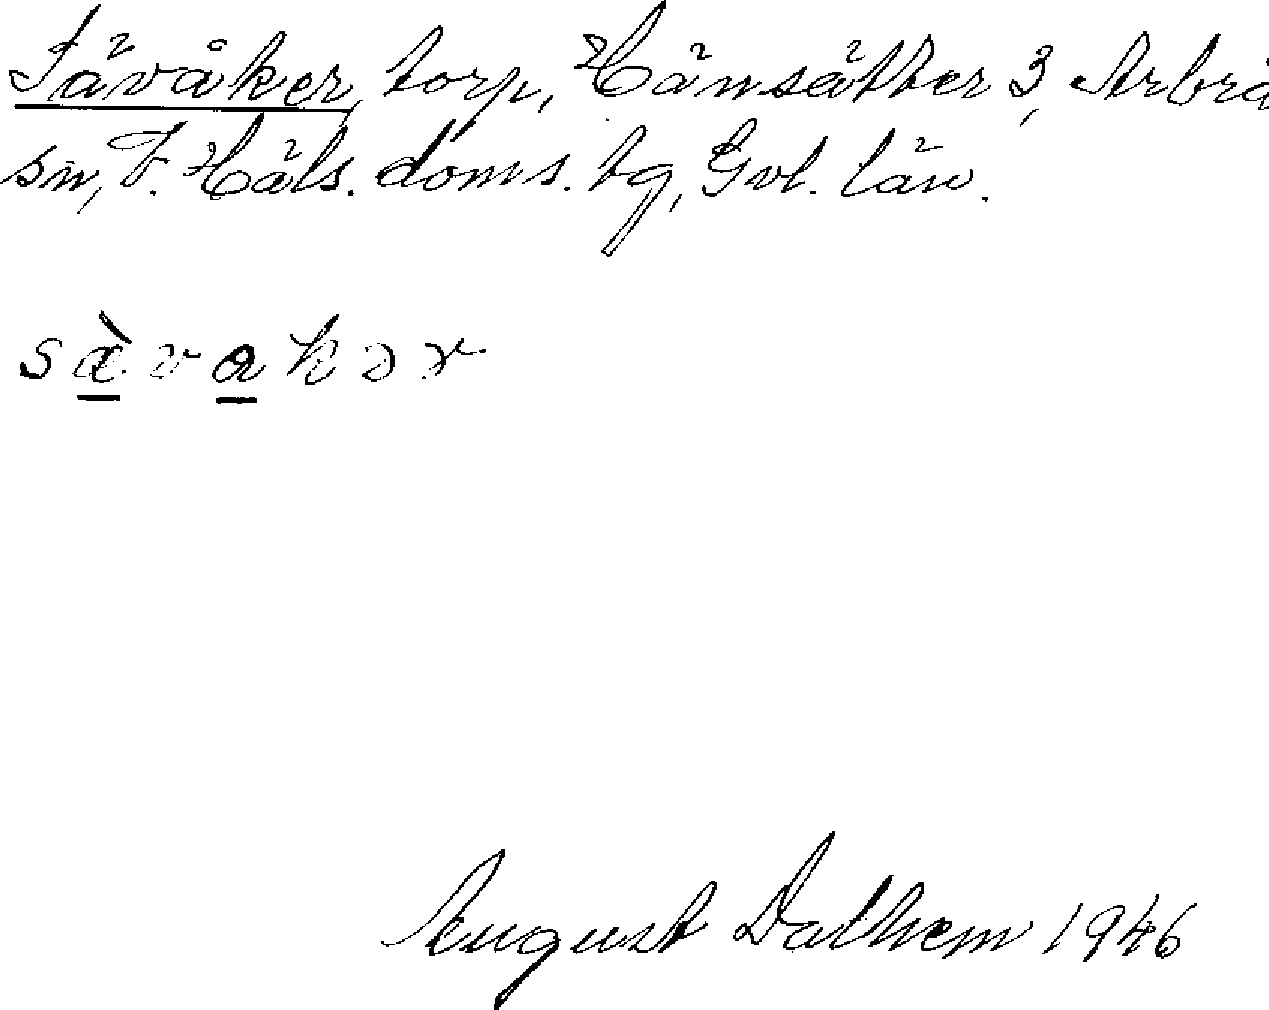 Säväåker, torp, Hänsätter 3, Arbrå
sn, V. Häls. doms. tg, Gvl. län.
sàvakər
August Dalhem 1946